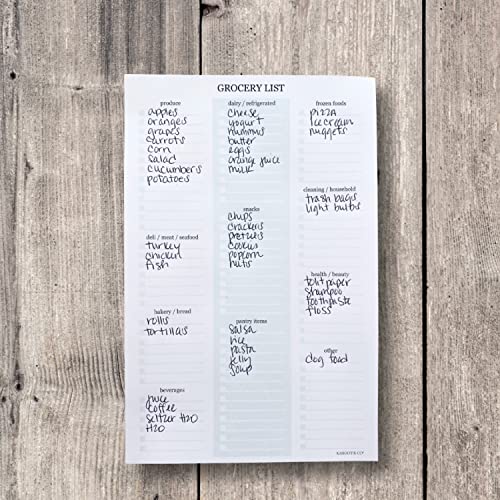 GROCERY LIST
produce
apples
oranges
grapes
carrots
corn
salad
cucumbers
potatoes
deli / meat / seafood
turkey
chicken
fish
bakery / bread
rolls
tortillas
beverages
juice
coffee
seltzer H2O
H2O
dairy / refrigerated
cheese
yogurt
hummus
butter
eggs
orange juice
milk
snacks
chips
crackers
pretzels
cookies
popcorn
nuts
pantry items
salsa
rice
pasta
jelly
soup
frozen foods
pizza
ice cream
nuggets
cleaning / household
trash bags
light bulbs
health / beauty
toilt paper
shampoo
toothpaste
floss
other
dog food